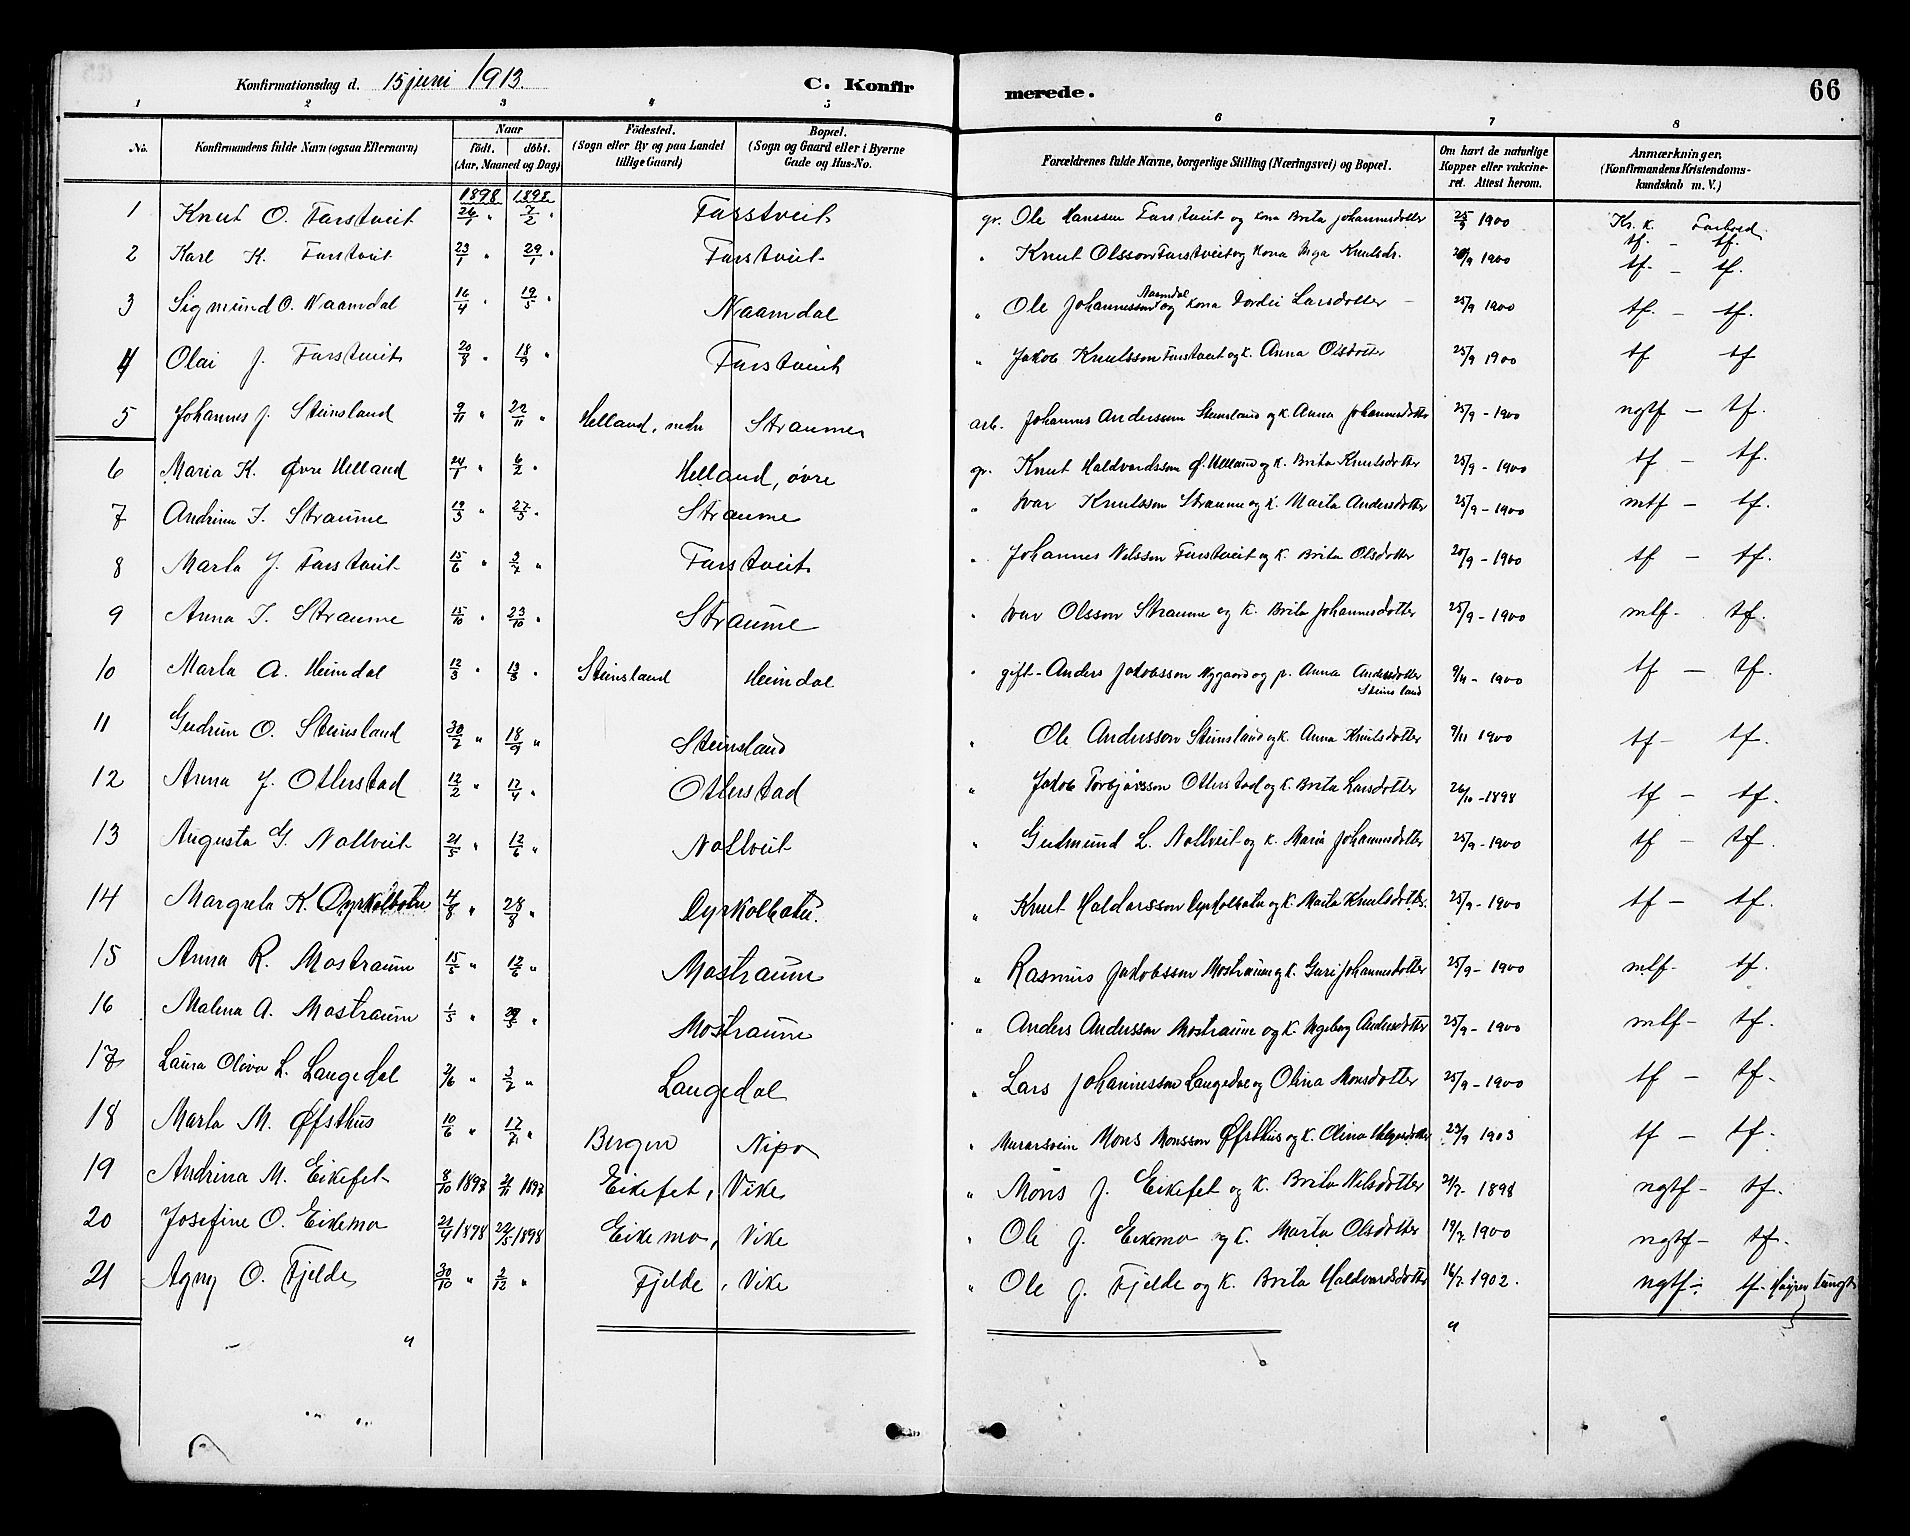 Konfirmationsdag d. 15 juni 1913. C. Konfirmerede. 66
1 2 3 4 5 6 7 8
No. Konfirmandens fulde Navn (ogsaa Efternavn) Naar født. døbt. (Aar, Maaned og Dag) Fødested. (Sogn eller By og paa Landet tillige Gaard) Bopæl. (Sogn og Gaard eller i Byerne Gade og Hus-No. Forældrenes fulde Navne, borgerlige Stilling (Næringsvei) og Bopæl. Om havt de naturlige Kopper eller vakcineret. Attest herom. Anmærkninger, (Konfirmandens Kristendomskundskab m. V.)
1898 1898
1 Knut O. Farstveit 26/1 " 7/2 " Farstveit gr. Ole Hanssen Farstveit og kona Brita Johannesdotter 25/9 1900 Kr. k. Forhold
tf. - tf.
2 Karl K. Farstveit 23/1 " 29/1 " Farstveit " Knut Olsson Farstveit og Kona Inga Knutsdr. 1900 tf. - tf.
3 Sigmund O. Naamdal 16/4 " 19/5 " Naamdal " Ole Johannesson Naamdal og Kona Dordei Larsdotter 25/9 1900 tf. - tf.
4 Olai J. Farstveit 20/8 " 18/9 " Farstveit " Jakob Knutsson Farstveit og k. Anna Olsdotter 25/9 1900 tf tf
5 Johannes J. Steinsland 9/11 " 22/11 " Helland, nedr Straume arb. Johannes Andersson Steinsland og k. Anna Johannesdotter 25/9 - 1900 ngtf - tf.
6 Maria K. Øvre Helland 24/1 " 6/2 " Helland, øvre gr. Knut Haldvardsson Ø. Helland og k. Brita Knutsdotter 25/9 - 1900 tf - tf.
7 Andrina I. Straume 19/3 " 27/3 " Straume " Ivar Knutsson Straume og k. Marta Andersdotter 25/9 - 1900 mtf - tf.
8 Marta J. Farstveit 15/6 " 3/7 " Farstveit " Johannes Nilsson Farstveit og k. Brita Olsdotter 20/9 - 1900 tf - tf.
9 Anna I. Straume 15/10 " 23/10 " Straume " Ivar Olsson Straume og k. Brita Johannesdotter 25/9 - 1900 mtf - tf.
10 Marta A. Heimdal 12/3 " 13/3 " Steinsland Heimdal " gift - Anders Jakobsson Nygaard og p. Anna Andersdotter Steinsland 9/11 - 1900 tf - tf.
11 Gudrun O. Steinsland 30/7 " 18/9 " Steinsland " Ole Andersson Steinsland og k. Anna Knutsdotter 9/11 1900 tf - tf.
12 Anna J. Otterstad 12/2 " 17/4 " Otterstad " Jakob Torbjørsson Otterstad og k. Brita Larsdotter 26/10 - 1898 tf - tf.
13 Augusta G. Nottveit 21/5 " 12/6 " Nottveit " Gudmund L. Nottveit og k. Maria Johannesdotter 25/9 - 1900 tf - tf.
14 Margreta K. Dyrkolbotn 4/8 " 28/8 " Dyrkolbotn. " Knut Haldorsson Dyrkolbotn og k. Marta Knutsdotter. 25/9 - 1900 tf - tf.
15 Anna R. Mostraum 15/5 " 12/6 " Mostraum " Rasmus Jakobsson Mostraum og k. Guri Johannesdotter 25/9 - 1900 mtf - tf.
16 Malena A. Mostraum 1/5 " 29/5 " Mostraum " Anders Andersson Mostraum og k. Ingeborg Andersdotter 25/9 - 1900 mtf - tf.
17 Laura Oliva L. Langedal 2/6 " 3/7 " Langedal " Lars Johannesson Langedal og Olina Monsdotter 25/9 - 1900 tf - tf.
18 Marta M. Øfsthus 10/6 " 17/7 " Bergen Nipo " Murarsvein Mons Monsson Øfsthus og k. Olina Helgesdotter 23/9 1903 tf - tf.
19 Andrina M. Eikefet 8/10 1897 21/11 1897 Eikefet, Vike " Mons J. Eikefet og k. Brita Nilsdotter 21/7 - 1898 ngtf - tf.
20 Josefine O. Eikemo 21/4 1898 22/5 1898 Eikemo, Vike " Ole J. Eikemo og k. Marta Olsdotter 19/7 1900 ngtf - tf.
21 Agny O. Fjelde 30/10 " 3/12 " Fjelde, Vike " Ole J. Fjelde og k. Brita Haldvardsdotter 16/7 1902. ngtf - tf. Høyrer tungt
" "